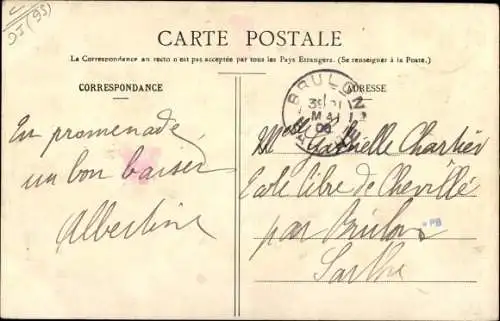 95 (95)
CARTE POSTALE
La Correspondance au recto n'est pas acceptée par tous les Pays Étrangers. (Se renseigner à la Poste.)
CORRESPONDANCE
ADRESSE
BRULON
MAI
06
En promenade
un bon baiser
Albertine
Melle Gabrielle Chartier
Ecole libre de Chevillé
par Brulon
Sarthe
PB